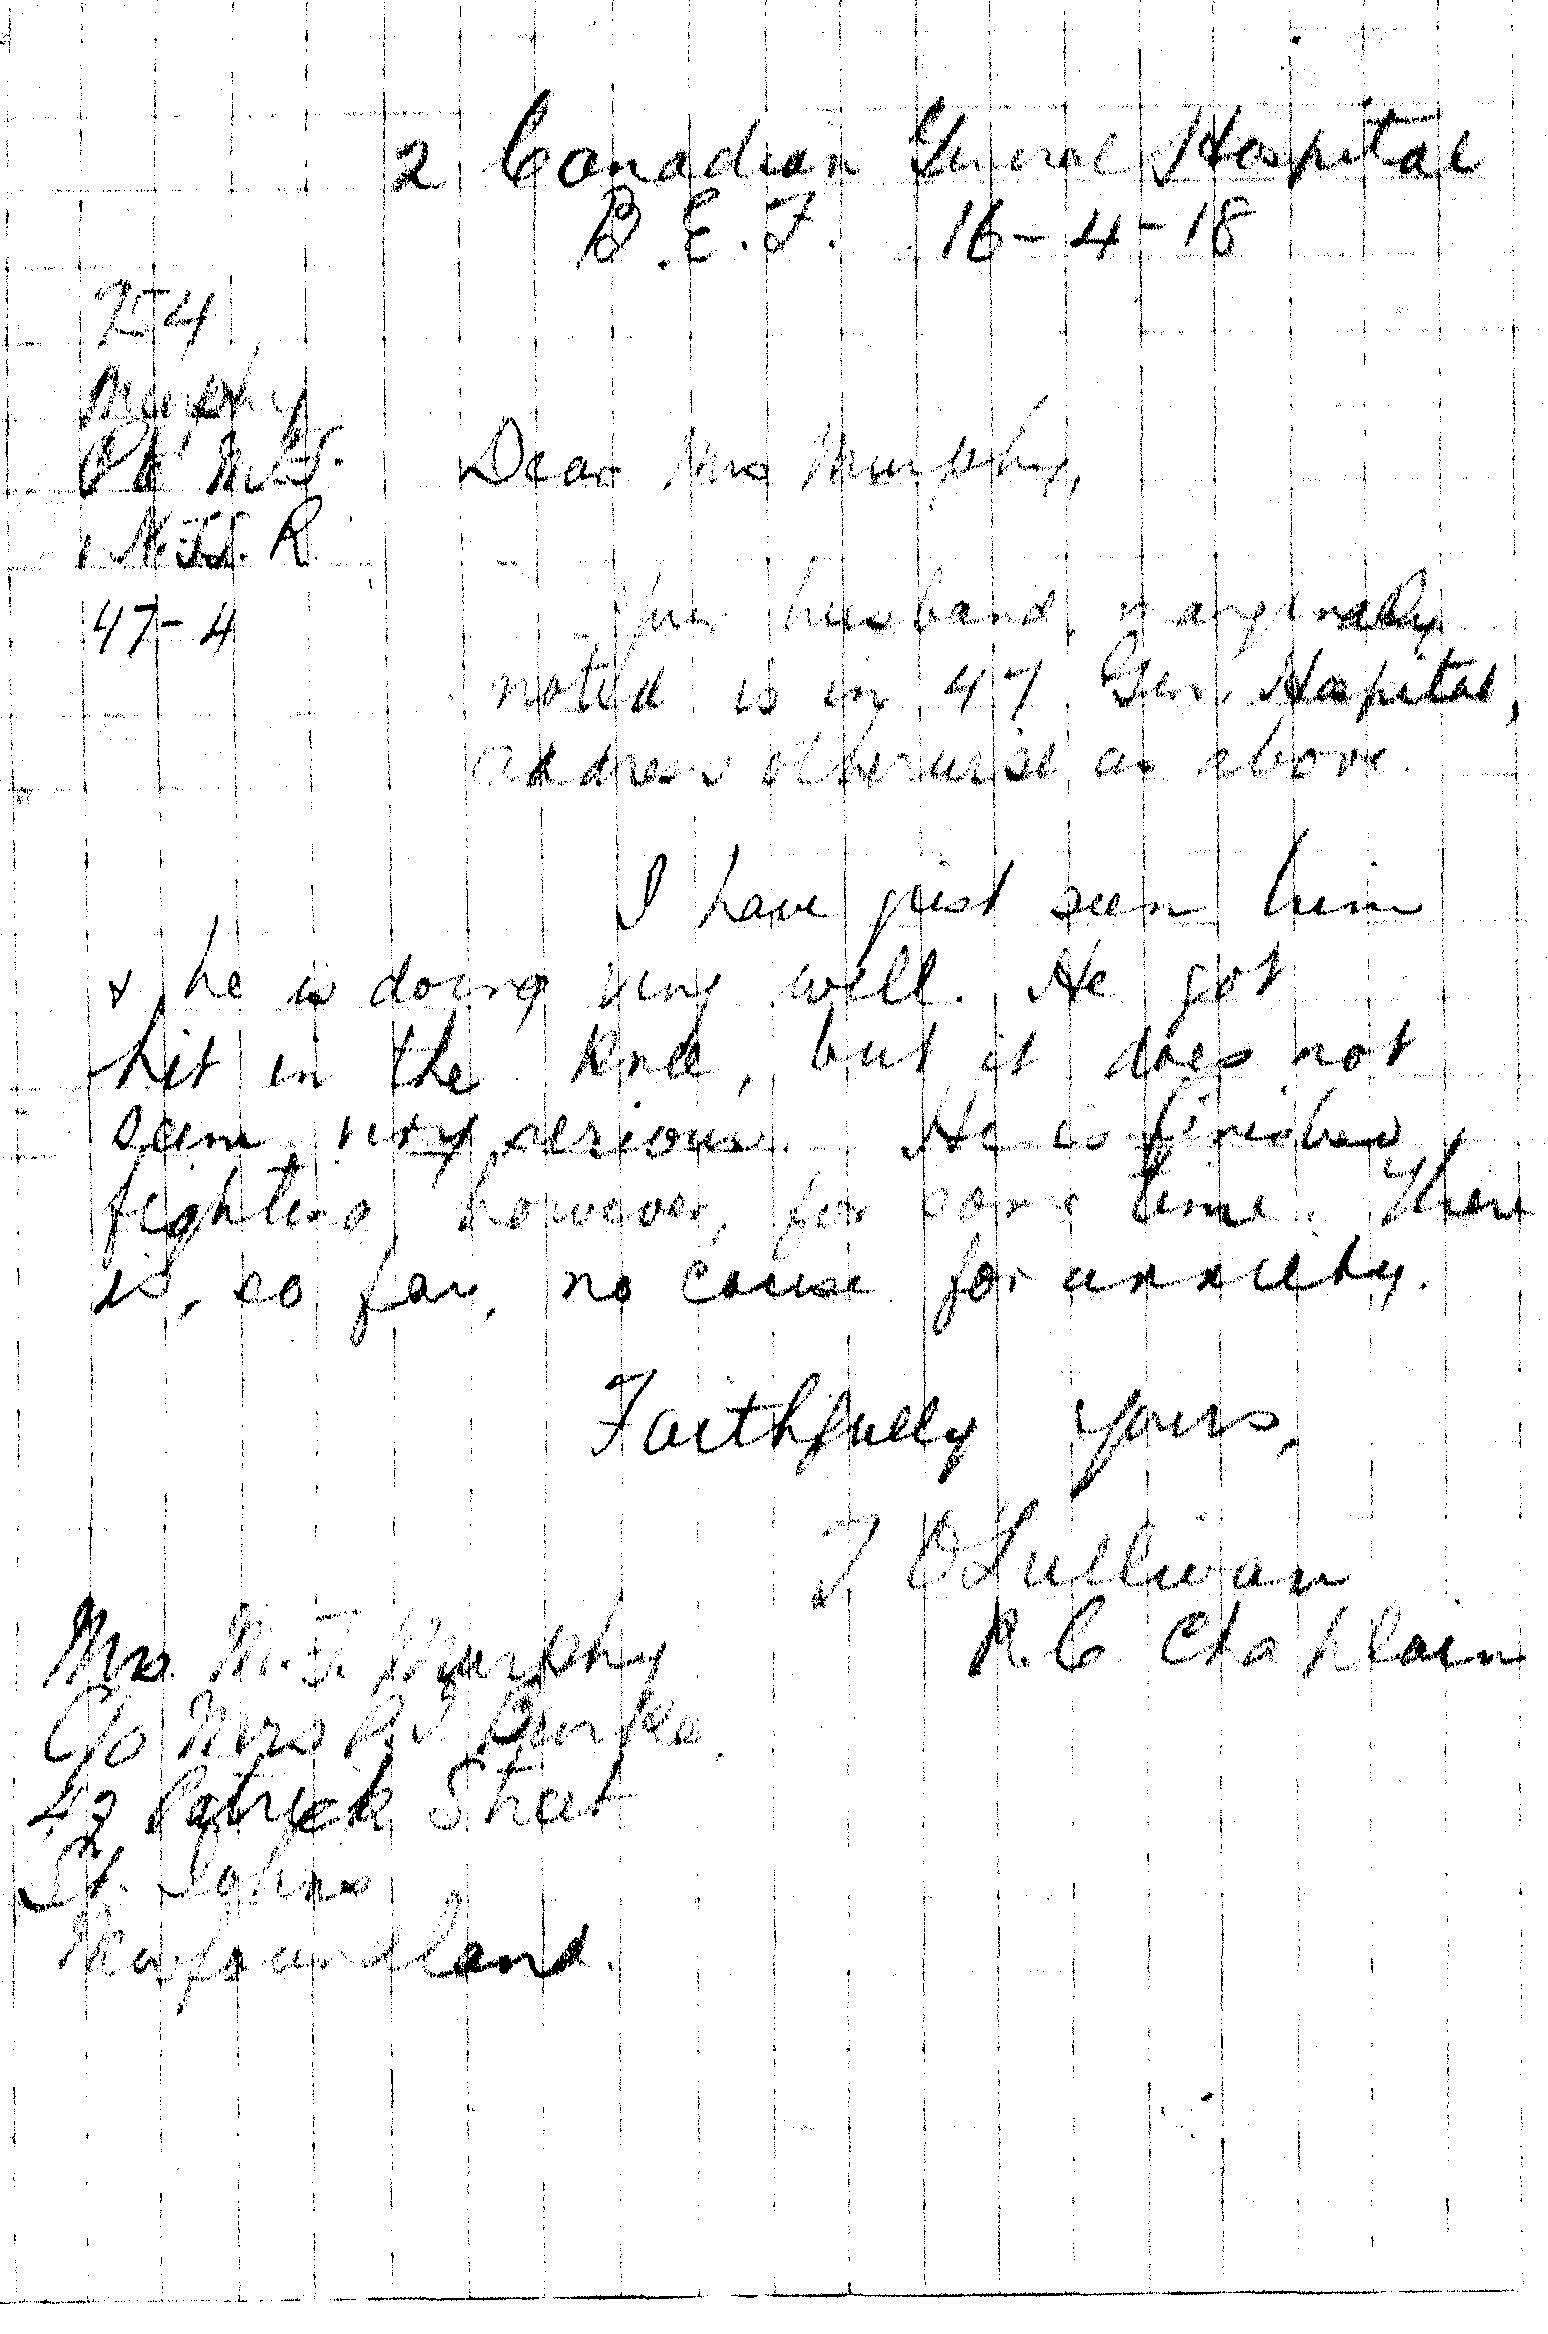 2 Canadian General Hospital
B.E.F. 16-4-18
754
Murphy
Pte M.J.
1 Nfld. R
47-4
Dear Mrs Murphy,
Your husband, marginally
noted is in 47 Gen Hospital,
address otherwise as above.
I have just seen him
& he is doing very well. He got
hit in the knee, but it does not
seem very serious. He is finished
fighting however, for some time. There
is, so far, no cause for anxiety.
Faithfully yours,
J. O'Sullivan
R.C Chaplain
Mrs. M.J. Murphy
C/o Mrs Burke.
42 Patrick Street
St. Johns
Newfoundland.